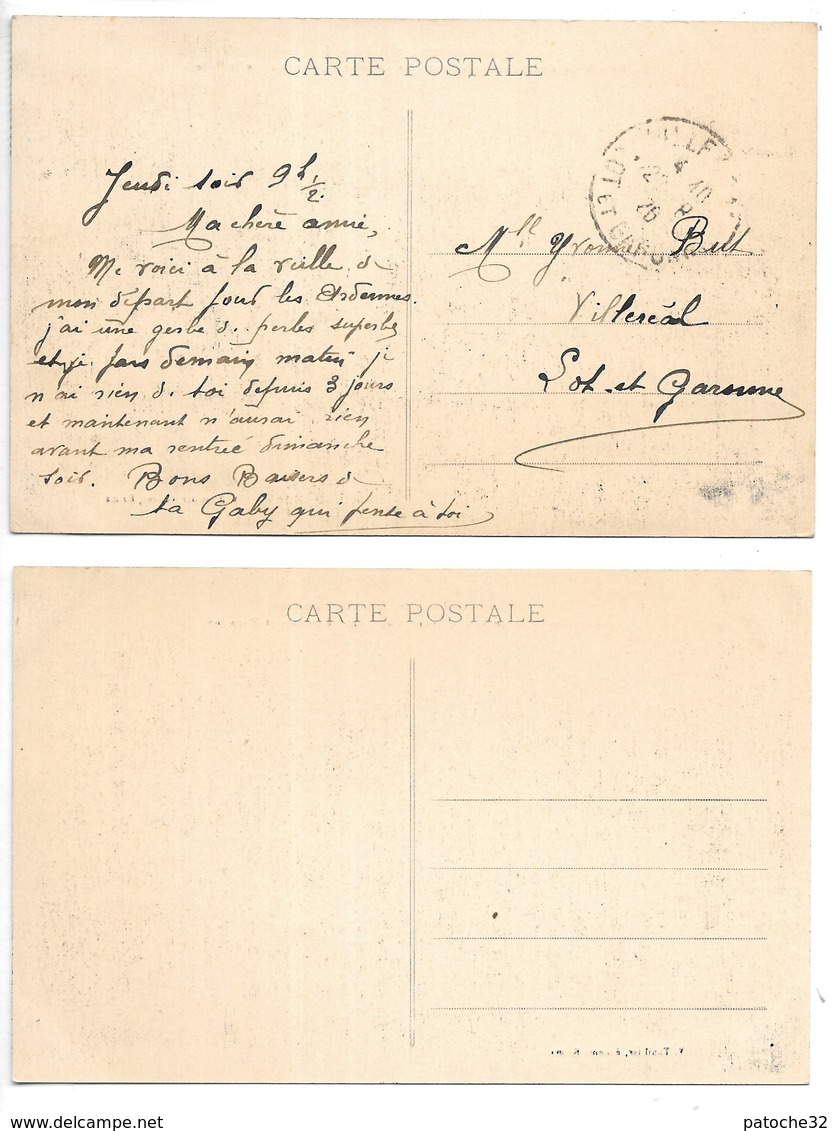 CARTE POSTALE
Jeudi soir 9h 1/2.
Ma chère amie,
Me voici à la veille de
mon départ pour les Ardennes.
j'ai une gerbe de perles superbe
et je pars demain matin je
n'ai rien de toi depuis 3 jours
et maintenant n'aurai rien
avant ma rentrée dimanche
soir. Bons Baisers de
ta Gaby qui pense à toi
Mlle Yvonne But
Villeréal
Lot-et-Garonne
LOT ET GARONNE
CARTE POSTALE
patoche32